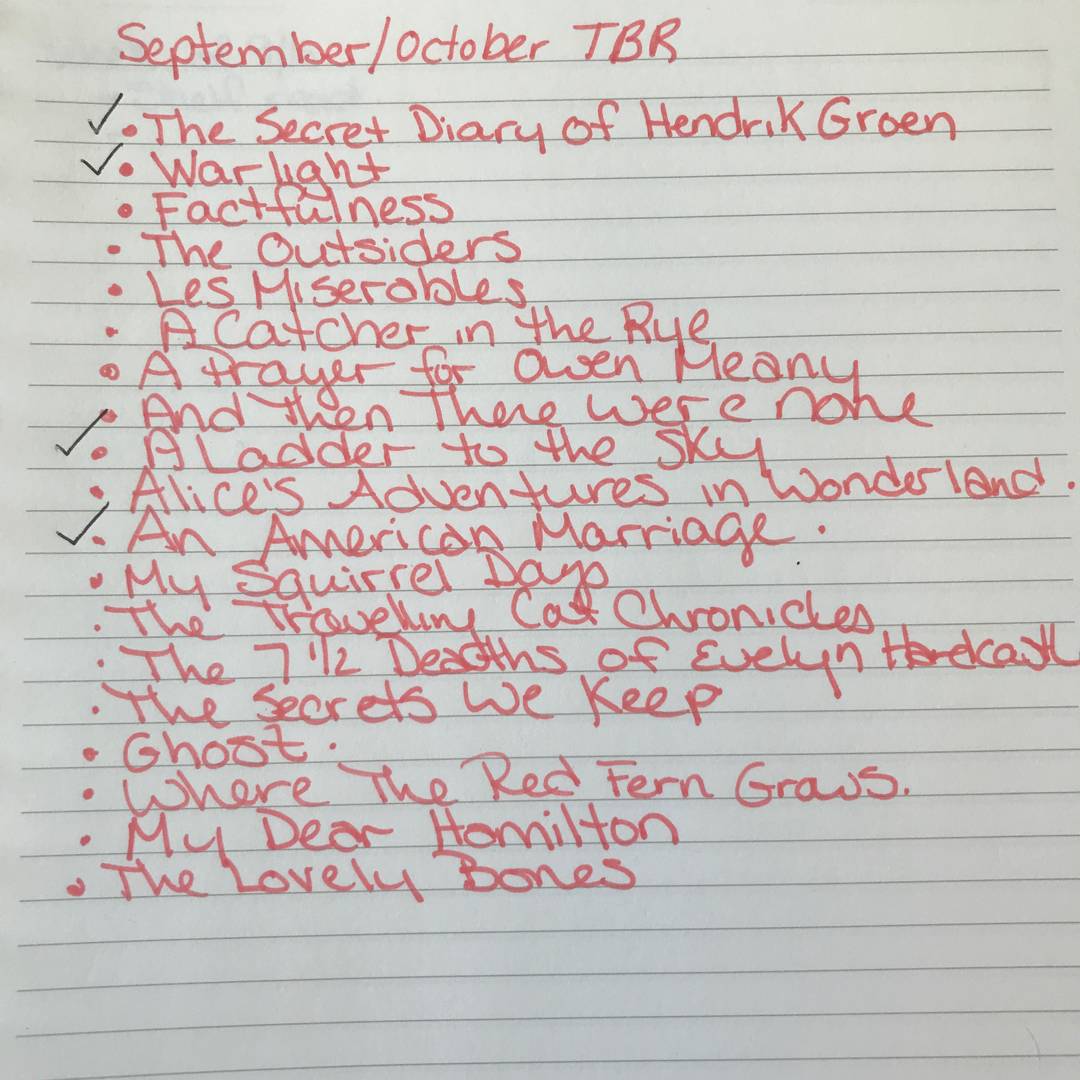 September/October TBR
✓ • The Secret Diary of Hendrik Groen
✓ • Warlight
• Factfulness
• The Outsiders
• Les Miserables
• A Catcher in the Rye
• A Prayer for Owen Meany
• And Then There were none
✓ • A Ladder to the Sky
• Alice's Adventures in Wonderland.
✓ • An American Marriage.
• My Squirrel Days
• The Travelling Cat Chronicles
• The 7 1/2 Deaths of Evelyn Hardcastl
• The Secrets We Keep
• Ghost.
• Where The Red Fern Grows.
• My Dear Hamilton
• The Lovely Bones